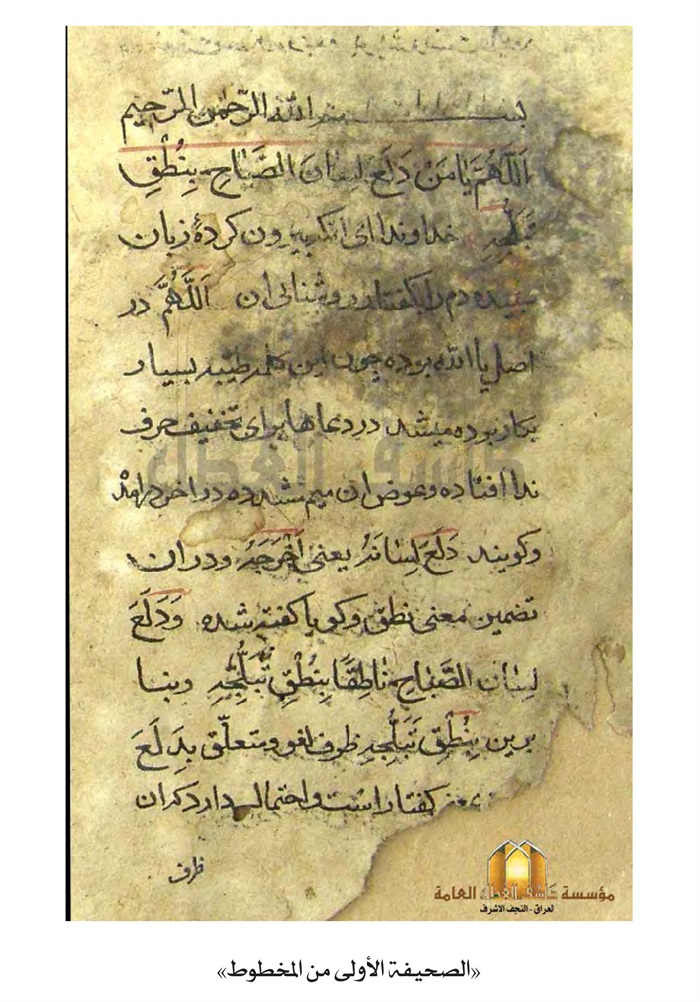 بسم الله الرحمن الرحيم
اَللّٰهُمَّ يَا مَنْ دَلَعَ لِسَانَ الصَّبَاحِ بِنُطْقِ
تَبَلُّجِهِ خداوندا ای انکه بیرون کردهٔ زبان
سپیده دم را بکفتار روشنائی ان اَللّٰهُمَّ در
اصل یا الله بوده چون این کلمه طیبه بسیار
بکار بوده میشد در دعاها برای تخفیف حرف
ندا افتاده وعوض ان میم مشدده در اخر درامد
وکویند دَلَعَ لِسَانَهُ یعنی اَخْرَجَهُ ودران
تضمین معنی نطق وکویا کفته شده وَدَلَعَ
لِسَانَ الصَّبَاحِ نَاطِقًا بِنُطْقِ تَبَلُّجِهِ وبنا
برین بِنُطْقِ تَبَلُّجِهِ ظرف لغو ومتعلّق بِدَلَعَ
یعنی کفتار است واحتمال دارد کران
ظرف
كاشف الغطاء
مؤسسة كاشف الغطاء العامة
لعراق - النجف الاشرف
«الصحيفة الأولى من المخطوط»